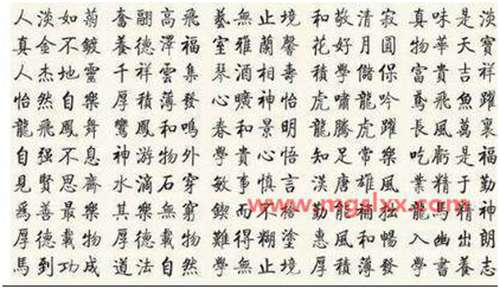 人淡如菊 奮翮高飛 藝無止境 和敬清寂 真味是淡
真金不鍍 養德澤福 室雅蘭馨 花好月圓 物華天寶
人杰地靈 千祥雲集 琴酒相壽 積學儲保 富貴吉祥
怡然自樂 厚積薄發 心曠神怡 虎嘯龍吟 鳶飛魚躍
龍飛鳳舞 鸞鳳和鳴 春和景明 龍騰虎躍 長風萬裏
自强不息 神游物外 學貴心悟 知足常樂 吃虧是福
見賢思齊 水滴石穿 敏事慎言 漢唐雄風 業精于勤
爲善最樂 其樂無窮 鍥而不捨 勤 補拙 龍馬精神
厚德載物 厚德載物 難得糊塗 惠風和暢 入幽出朗
馬到功成 道法自然 學無止境 厚積薄發 學書養志
www.mgslxx.com